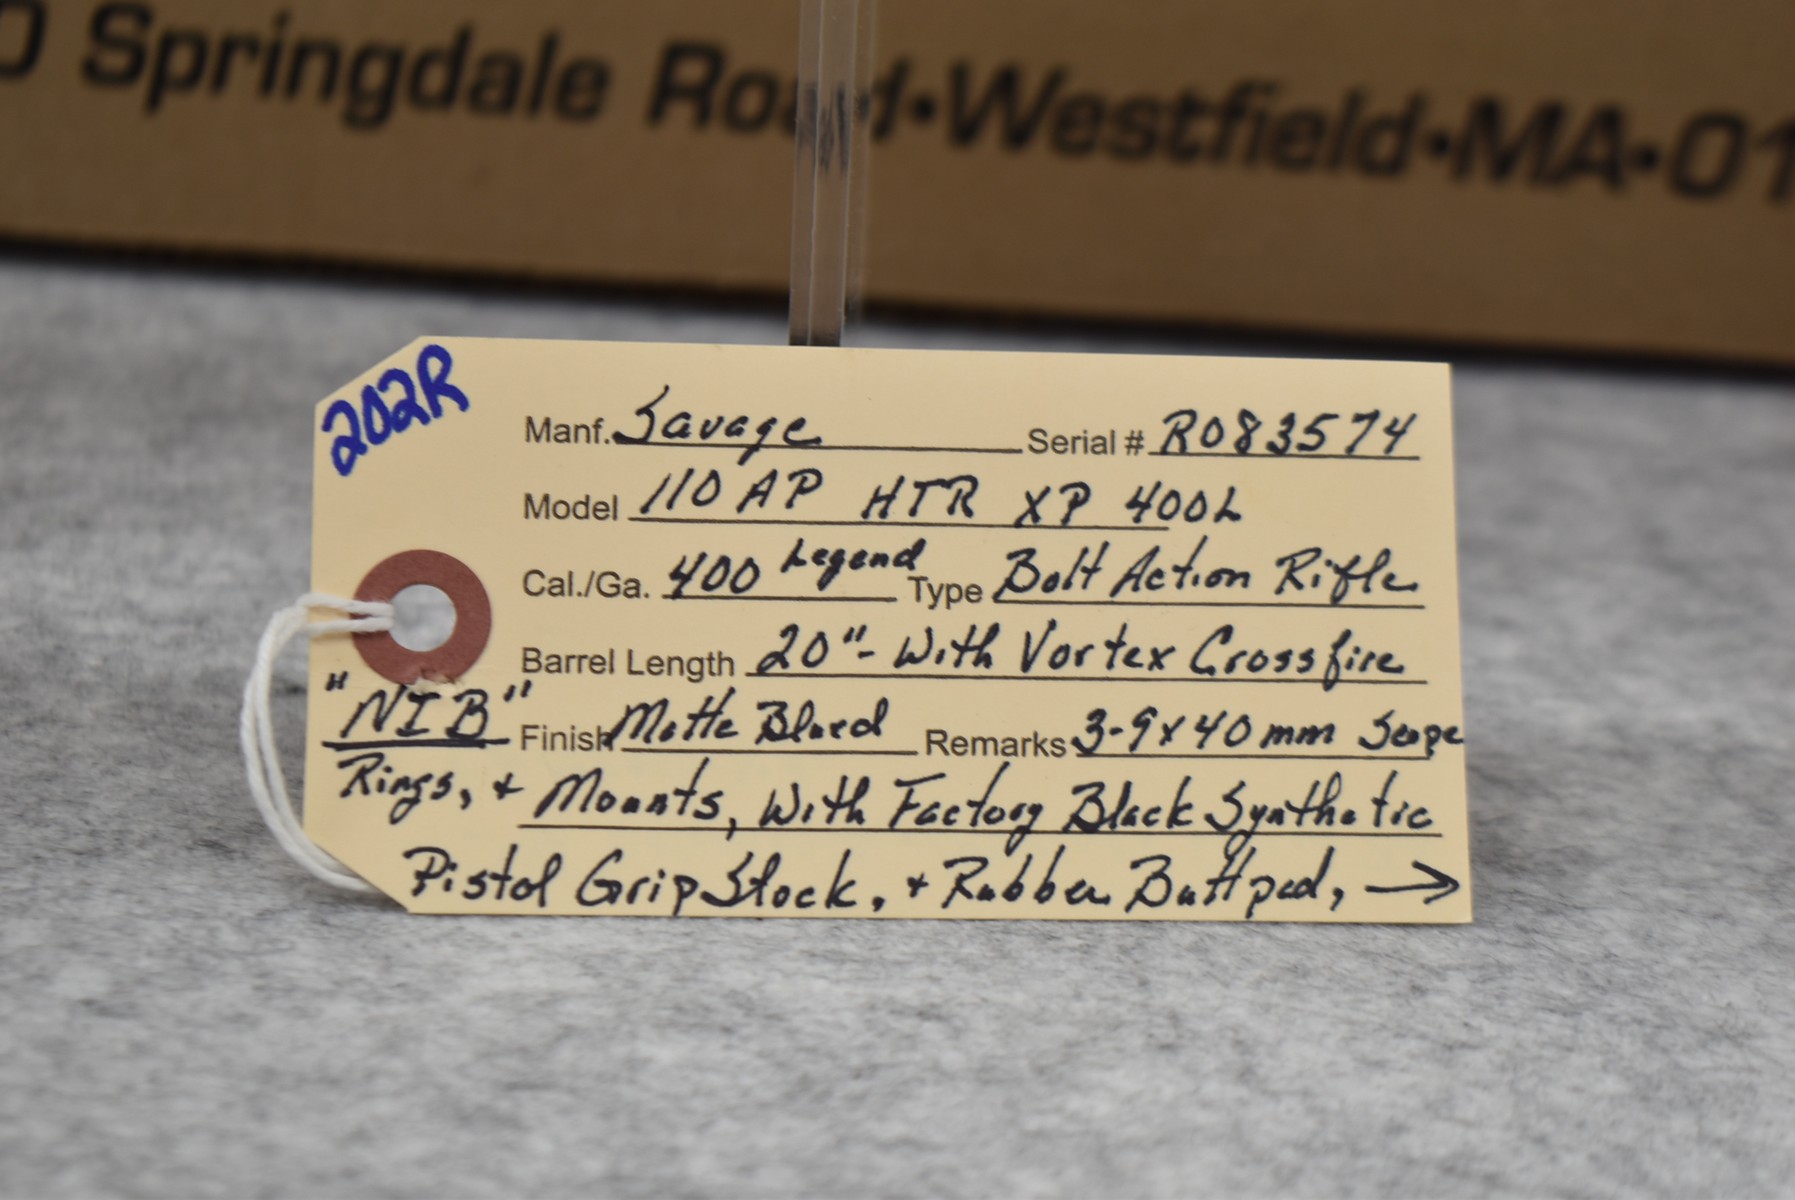 0 Springdale Road•Westfield•MA•01
202R
Manf. Savage Serial # R083574
Model 110 AP HTR XP 400L
Cal./Ga. 400 Legend Type Bolt Action Rifle
Barrel Length 20"- With Vortex Crossfire
"NIB" Finish Matte Blued Remarks 3-9x40mm Scope
Rings, + Mounts, With Factory Black Synthetic
Pistol Grip Stock, + Rubber Buttpad, →